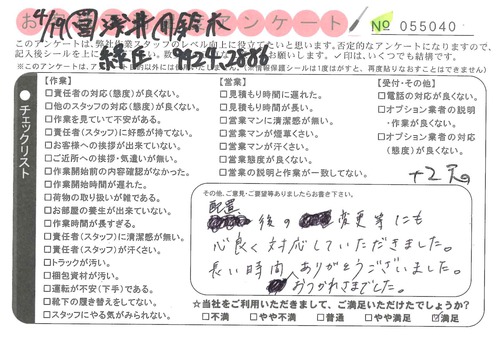 4/19
お アンケート
№ 055040
このアンケートは、弊社作業スタッフのレベル向上に役立てたいと思います。否定的なアンケートになりますので、
記入後シールを上に お願いします。✓印は、いくつでも結構です。
(情報保護シールは1度はがすと、再度貼りなおすことはできません)
チェックリスト
【作業】
□責任者の対応(態度)が良くない。
□他のスタッフの対応(態度)が良くない。
□作業を見ていて不安がある。
□責任者(スタッフ)に好感が持てない。
□お客様への挨拶が出来ていない。
□ご近所への挨拶・気遣いが無い。
□作業開始前の内容確認がなかった。
□作業開始時間が遅れた。
□荷物の取り扱いが雑である。
□お部屋の養生が出来ていない。
□作業時間が長すぎる。
□責任者(スタッフ)に清潔感が無い。
□責任者(スタッフ)が汗くさい。
□トラックが汚い。
□梱包資材が汚い。
□運転が不安(下手)である。
□靴下の履き替えをしてない。
□スタッフにやる気がみられない。
【営業】
□見積もり時間に遅れた。
□見積もり時間が長い。
□営業マンに清潔感が無い。
□営業マンが煙草くさい。
□営業マンが汗くさい。
□営業態度が良くない。
□営業の説明と作業が一致してない。
【受付・その他】
□電話の対応が良くない。
□オプション業者の説明
・作業が良くない。
□オプション業者の対応
(態度)が良くない。
+2点
その他、ご意見・ご要望等ありましたらお書き下さい。
配置
後の 変更等にも
心良く対応していただきました。
長い時間、ありがとうございました。
おつかれさまでした。
☆当社をご利用いただきまして、ご満足いただけたでしょうか?
□不満 □やや不満 □普通 □やや満足 ☑満足